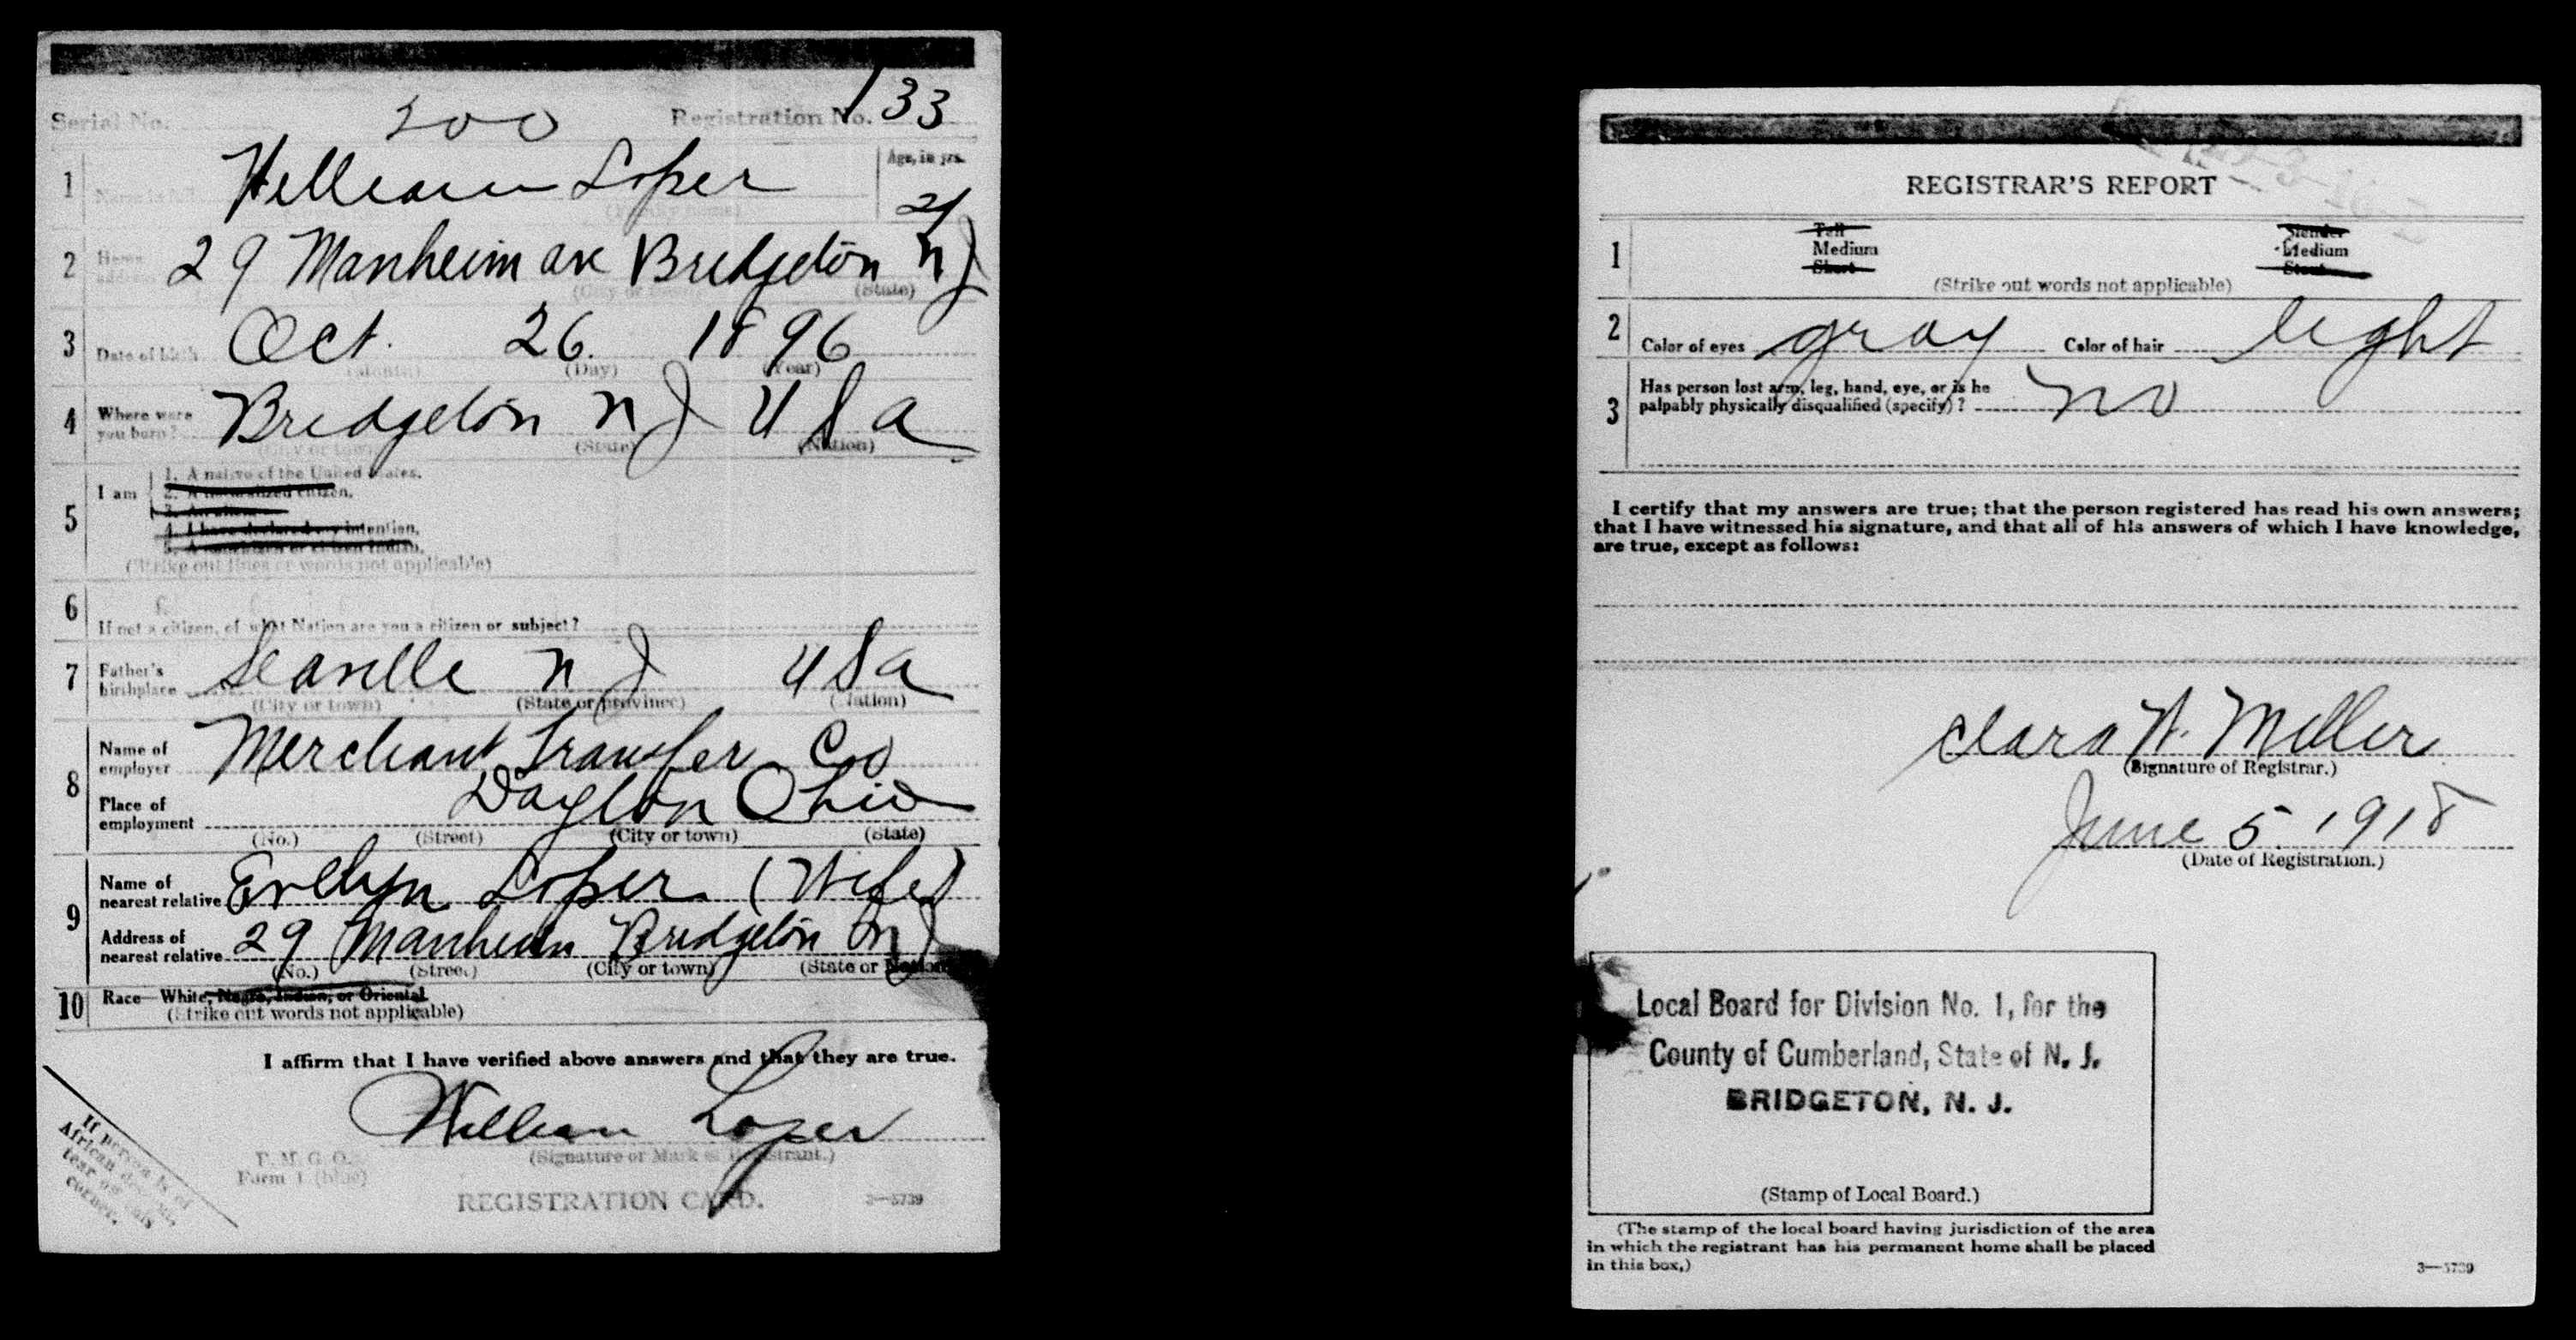 Serial No. 200 Registration No. 133
1 William Loper Age, in yrs. 21
2 Home address 29 Manheim ave Bridgeton N J
(City or town) (State)
3 Date of birth Oct. 26. 1896
(Month) (Day) (Year)
4 Where were you born? Bridgeton N J U S a
(City or town) (State) (Nation)
5 I am
1. A native of the United States.
2. A naturalized citizen.
3. An alien
4. I have declared my intention.
5. A noncitizen or citizen Indian.
(Strike out lines or words not applicable)
6 If not a citizen, of what Nation are you a citizen or subject?
7 Father's birthplace Seaville N J U S a
(City or town) (State or province) (Nation)
8 Name of employer Merchant Transfer Co
Place of employment Dayton Ohio
(No.) (Street) (City or town) (State)
9 Name of nearest relative Evelyn Loper (Wife)
Address of nearest relative 29 Manheim Bridgeton N J
(No.) (Street) (City or town) (State or Nation)
10 Race—White, Negro, Indian, or Oriental
(Strike out words not applicable)
I affirm that I have verified above answers and that they are true.
William Loper
(Signature or Mark of Registrant.)
If person is of
African descent,
tear off this
corner.
P. M. G. O.
Form 1 (blue)
REGISTRATION CARD. 3—5739
REGISTRAR'S REPORT
1 Tall Slender
Medium Medium
Short Stout
(Strike out words not applicable)
2 Color of eyes gray Color of hair light
3 Has person lost arm, leg, hand, eye, or is he
palpably physically disqualified (specify)? no
I certify that my answers are true; that the person registered has read his own answers;
that I have witnessed his signature, and that all of his answers of which I have knowledge,
are true, except as follows:
Clara W. Miller
(Signature of Registrar.)
June 5. 1918
(Date of Registration.)
Local Board for Division No. 1, for the
County of Cumberland, State of N. J.
BRIDGETON, N. J.
(Stamp of Local Board.)
(The stamp of the local board having jurisdiction of the area
in which the registrant has his permanent home shall be placed
in this box.)
3—5739